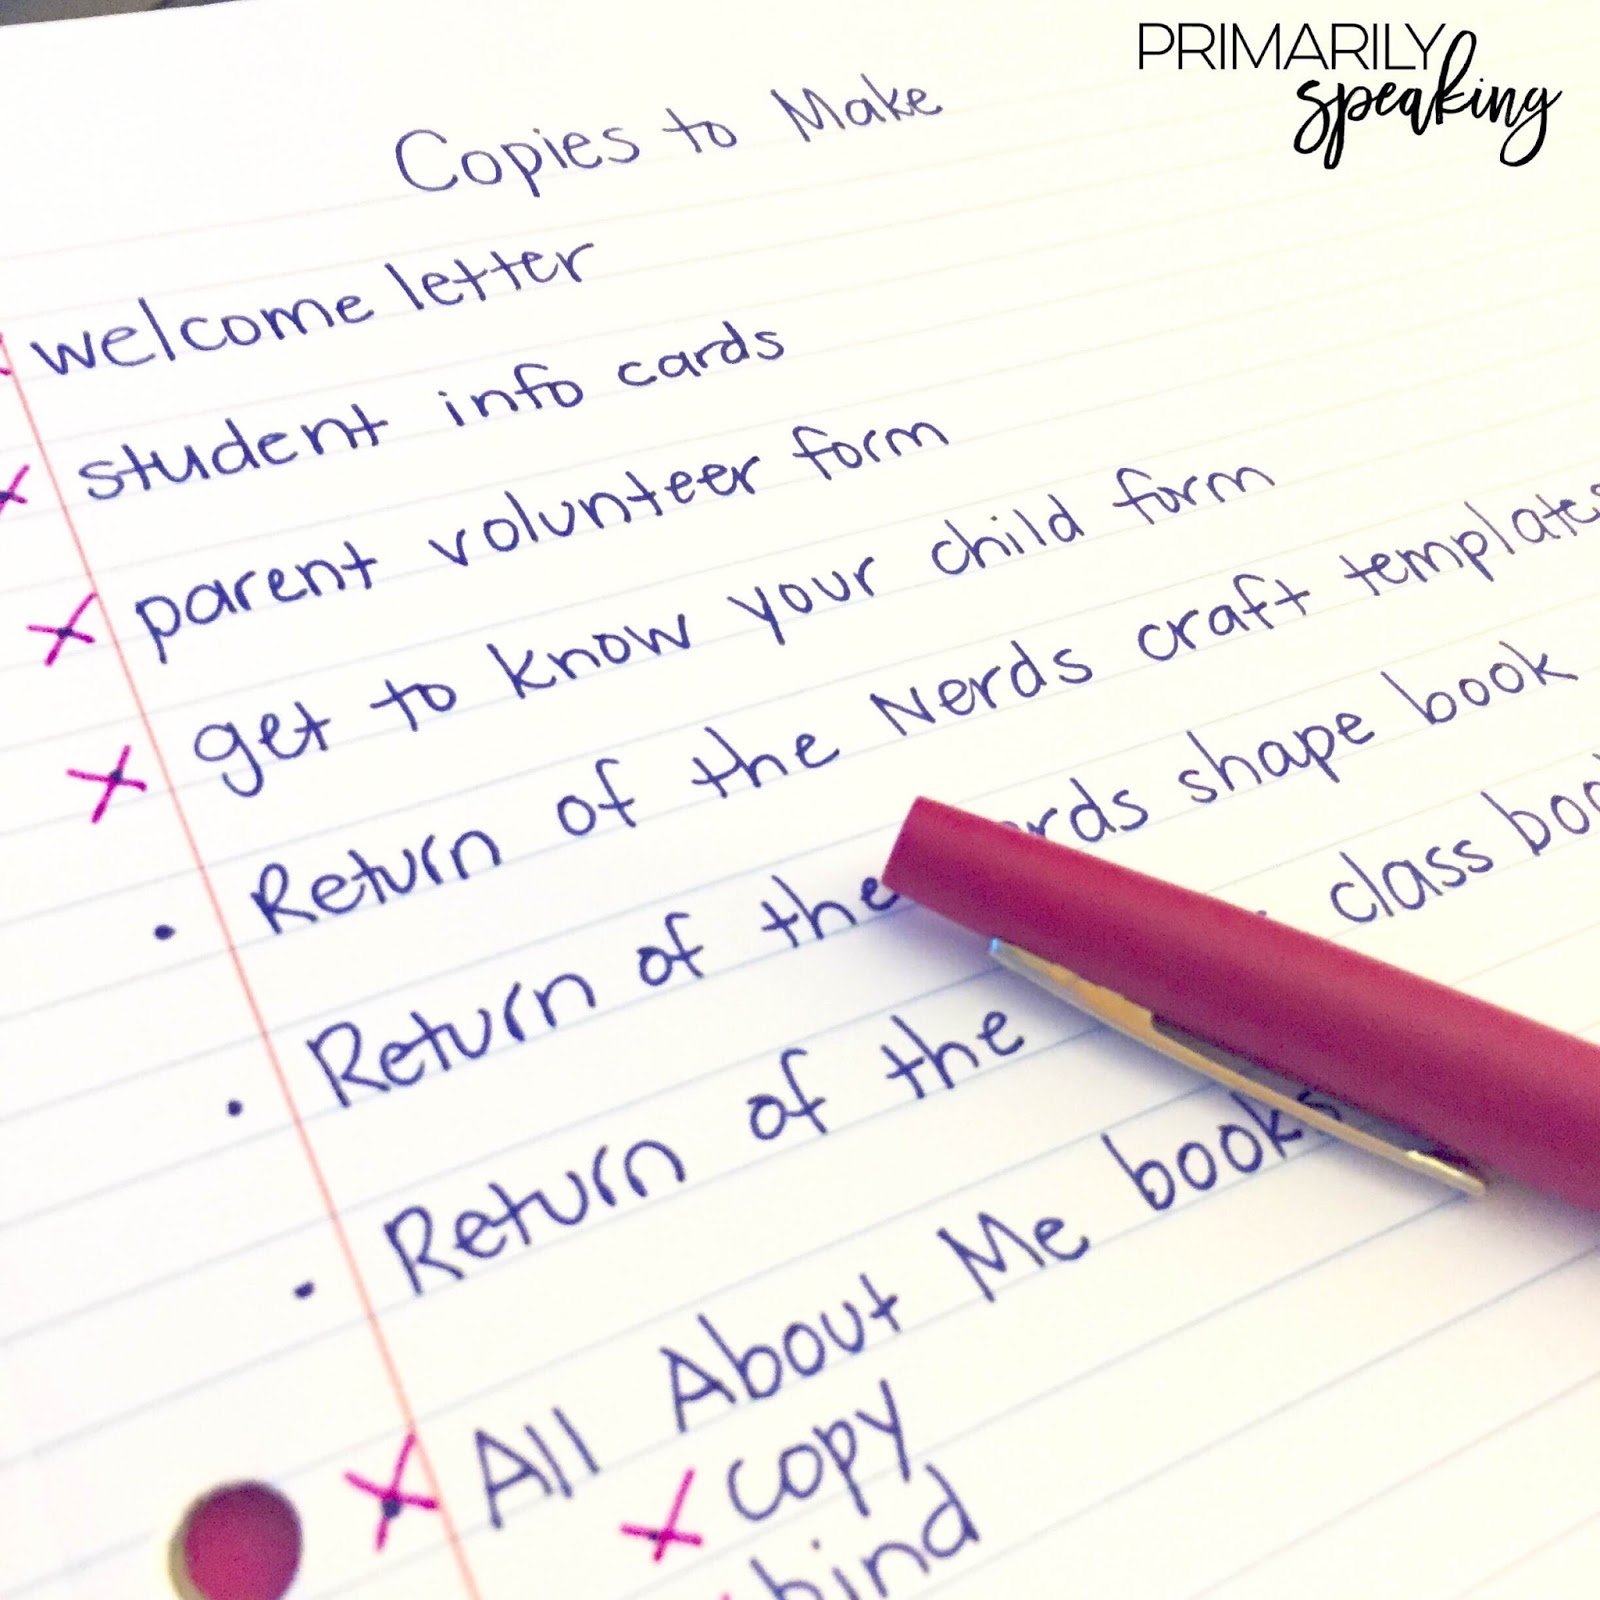 PRIMARILY
speaking
Copies to Make
welcome letter
student info cards
parent volunteer form
get to know your child form
Return of the Nerds craft templates
Return of the shape book
Return of the class
All About Me books
copy
bind